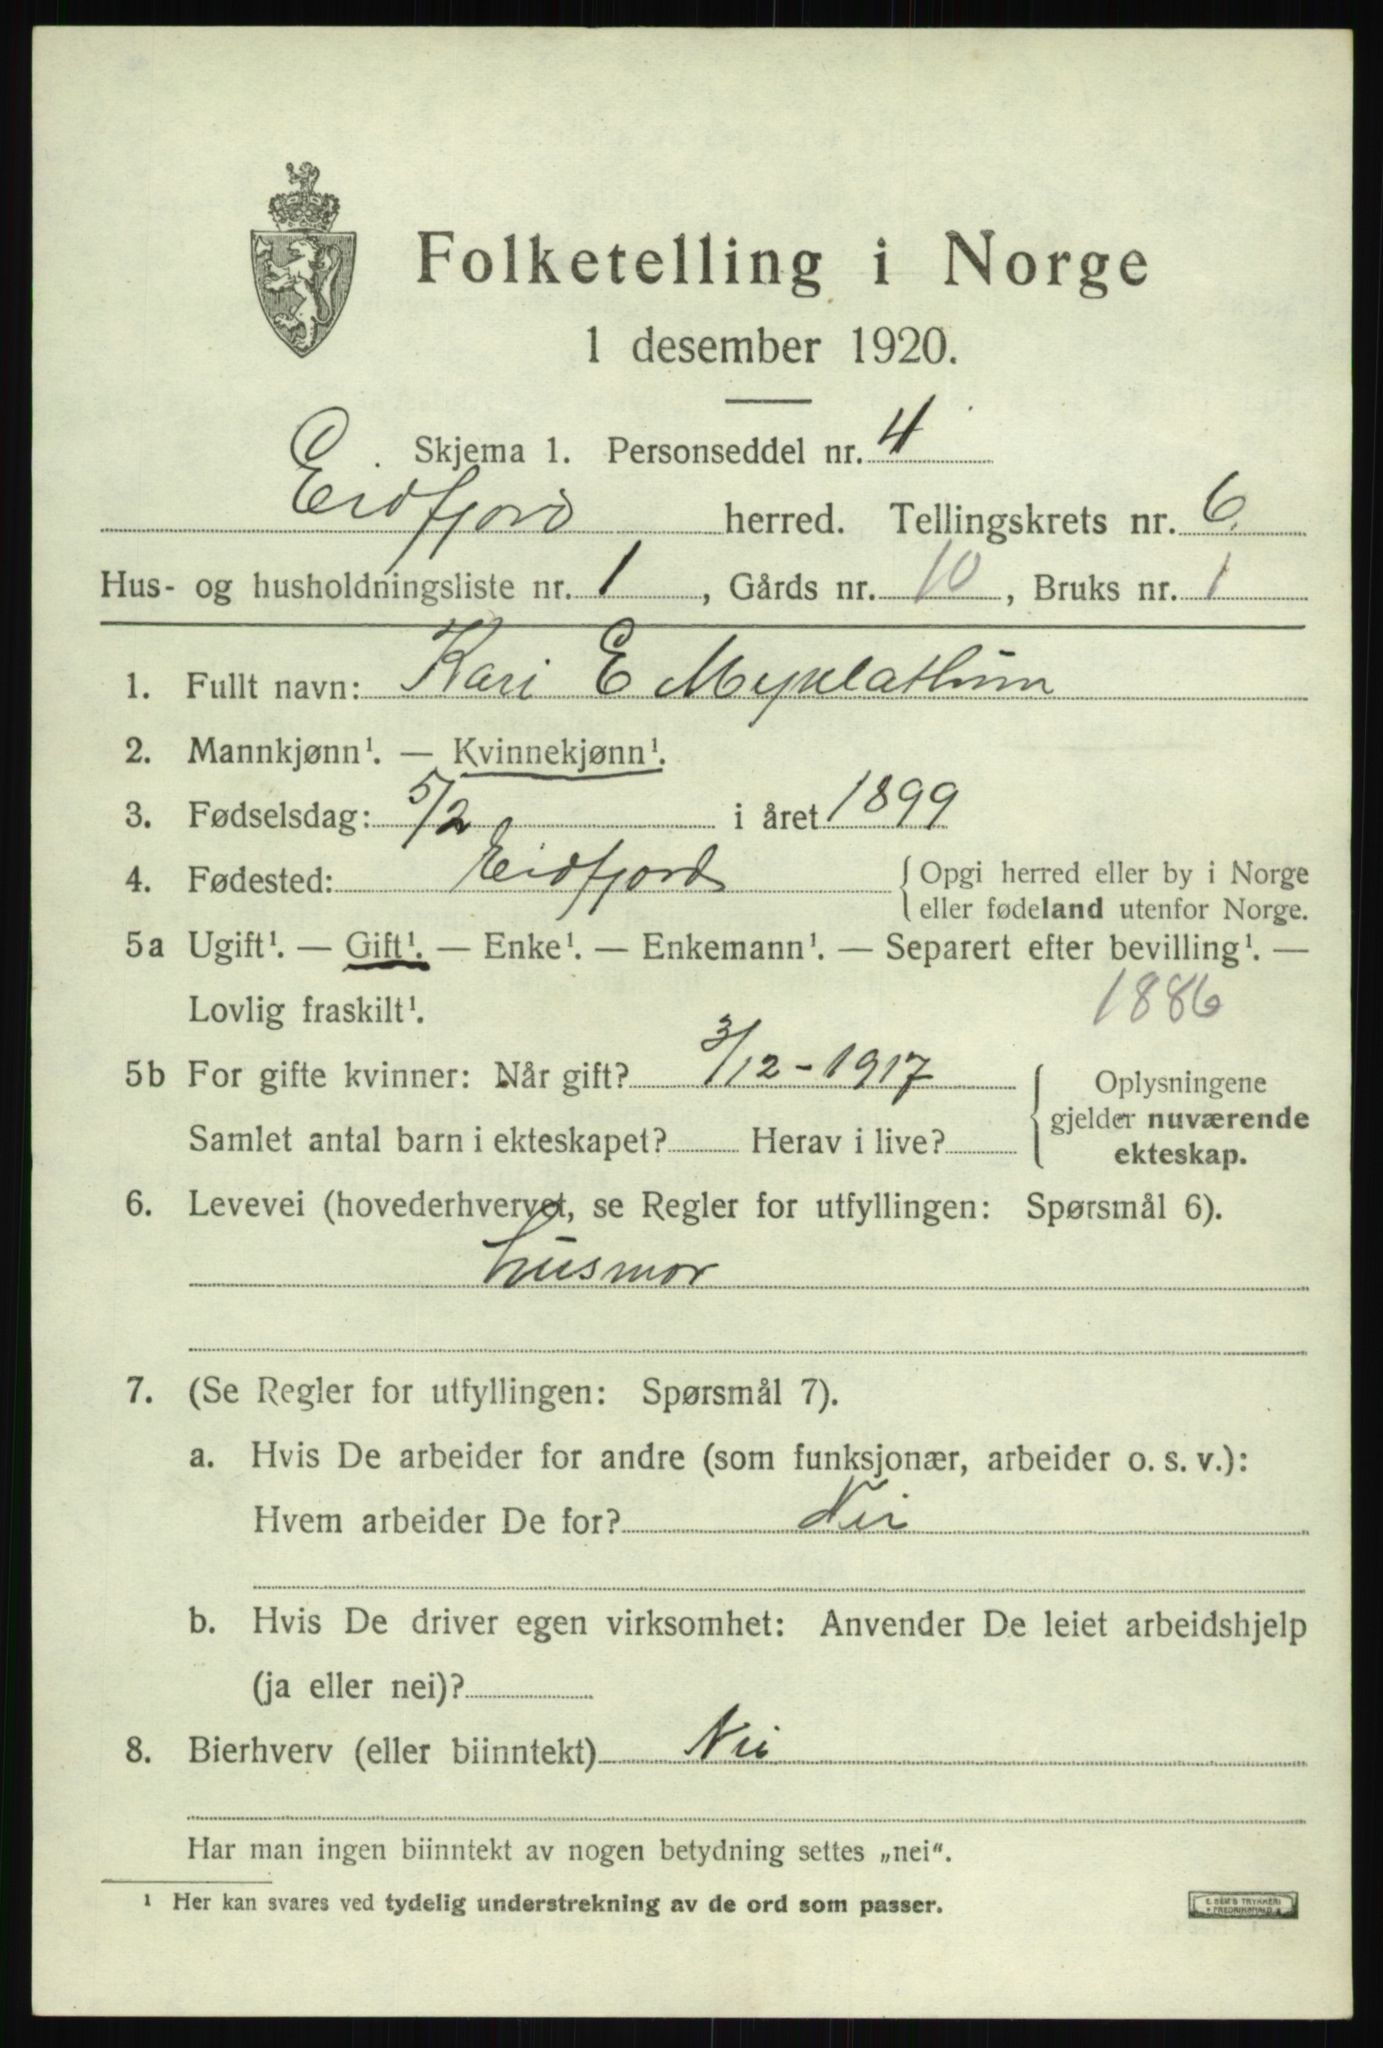 Folketelling i Norge
1 desember 1920.
Skjema 1. Personseddel nr. 4
Eidfjord herred. Tellingskrets nr. 6.
Hus- og husholdningsliste nr. 1, Gårds nr. 10, Bruks nr. 1
1. Fullt navn: Kari E Myklathun
2. Mannkjønn¹. — Kvinnekjønn¹.
3. Fødselsdag: 5/2 i året 1899
4. Fødested: Eidfjord { Opgi herred eller by i Norge
eller fødeland utenfor Norge.
5a Ugift¹. — Gift¹. — Enke¹. — Enkemann¹. — Separert efter bevilling¹. —
Lovlig fraskilt¹. 1886
5b For gifte kvinner: Når gift? 3/12 - 1917 { Oplysningene
gjelder nuværende
Samlet antal barn i ekteskapet? Herav i live?
ekteskap.
6. Levevei (hovederhvervet, se Regler for utfyllingen: Spørsmål 6).
husmor
7. (Se Regler for utfyllingen: Spørsmål 7).
a. Hvis De arbeider for andre (som funksjonær, arbeider o. s. v.):
Hvem arbeider De for? Nei
b. Hvis De driver egen virksomhet: Anvender De leiet arbeidshjelp
(ja eller nei)?
8. Bierhverv (eller biinntekt) Nei
Har man ingen biinntekt av nogen betydning settes „nei".
¹ Her kan svares ved tydelig understrekning av de ord som passer.
E. SEM'S TRYKKERI
FREDRIKSHALD